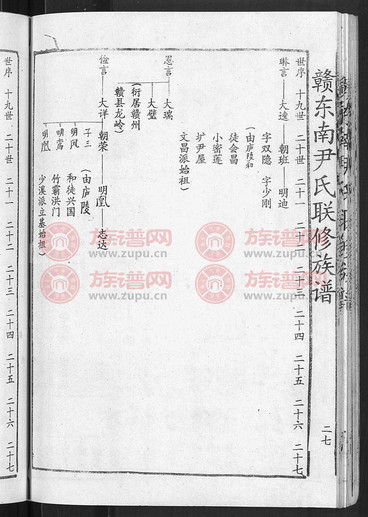 赣东南尹氏联修族谱
二七
世序 十九世 二十世 二十一 二十二 二十三 二十四 二十五 二十六 二十七
琳言 大逵 朝班 明迪
字双隐 字少刚
(由庐陵和
徒会昌
小密莲
圹尹屋
文昌派始祖)
恩言 大瑞
大璧
(衍居赣州
赣县龙岭)
俭言 大详 朝荣 明凰 志达
子三 (由庐陵
明凤 和徒兴国
明鸾 竹霸洪门
明凰 少溪派立基始祖)
世序 十九世 二十世 二十一 二十二 二十三 二十四 二十五 二十六 二十七
族谱网
www.zupu.cn
族谱网
www.zupu.cn
族谱网
www.zupu.cn
族谱网
www.zupu.cn
族谱网
www.zupu.cn
族谱网
www.zupu.cn